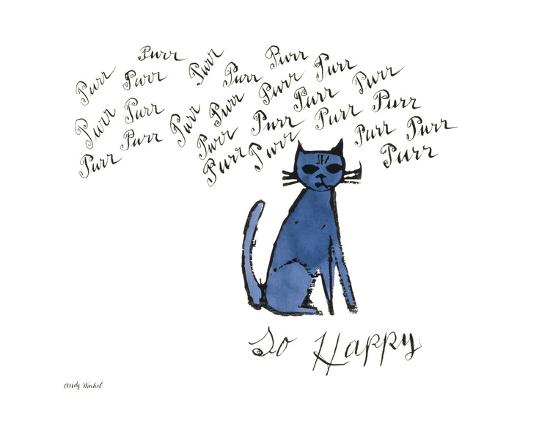 Purr Purr Purr Purr
Purr Purr Purr Purr Purr
Purr Purr Purr Purr Purr
Purr Purr Purr Purr Purr
Purr Purr Purr Purr Purr
Purr
So Happy
Andy Warhol